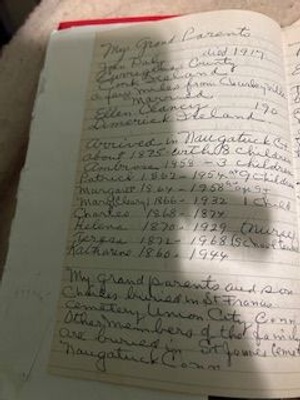 My Grand Parents
John Daly died 1917
County
Cork Ireland
a few miles from
Married
Ellen Clancy 190
Limerick Ireland
Arrived in Naugatuck Ct
about 1875 with 3 children
Ambrose 1858 - 3 children
Patrick 1862 - 1954 9 children
Margaret 1864 - 1958
1866 - 1932 1 child
Charles 1868 - 1874
Helena 1870 - 1929 (nurse)
Teresa 1872 - 1968 (School teacher
Katharine 1860 - 1944
"My Grand parents and son
Charles buried in St Francis
Cemetery Union City Conn
Other members of the family
are buried in St James Cemet
Naugatuck Conn